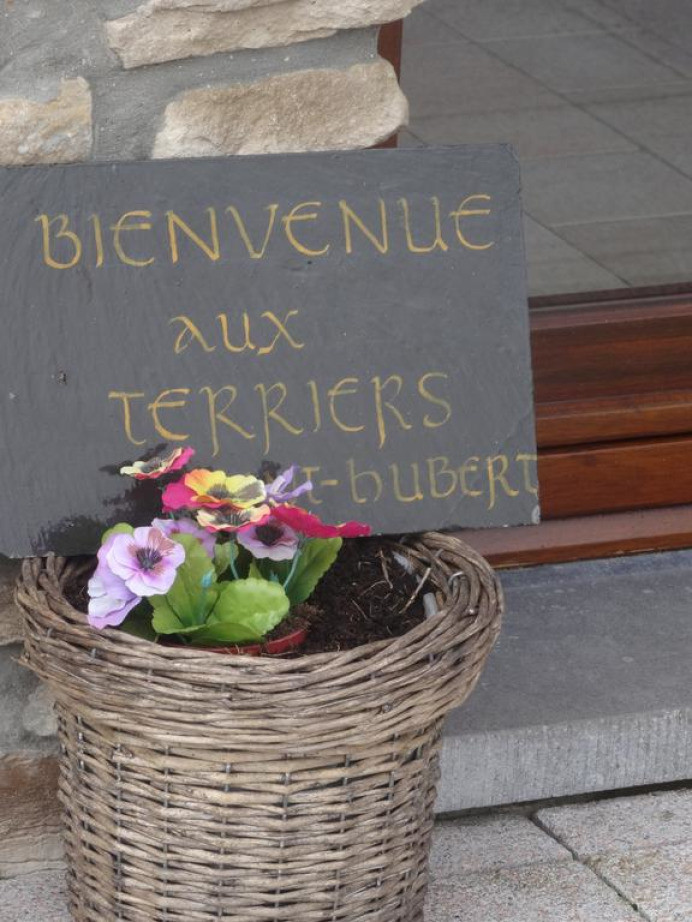 BIENVENUE
aux
TERRIERS
T-hUBERT